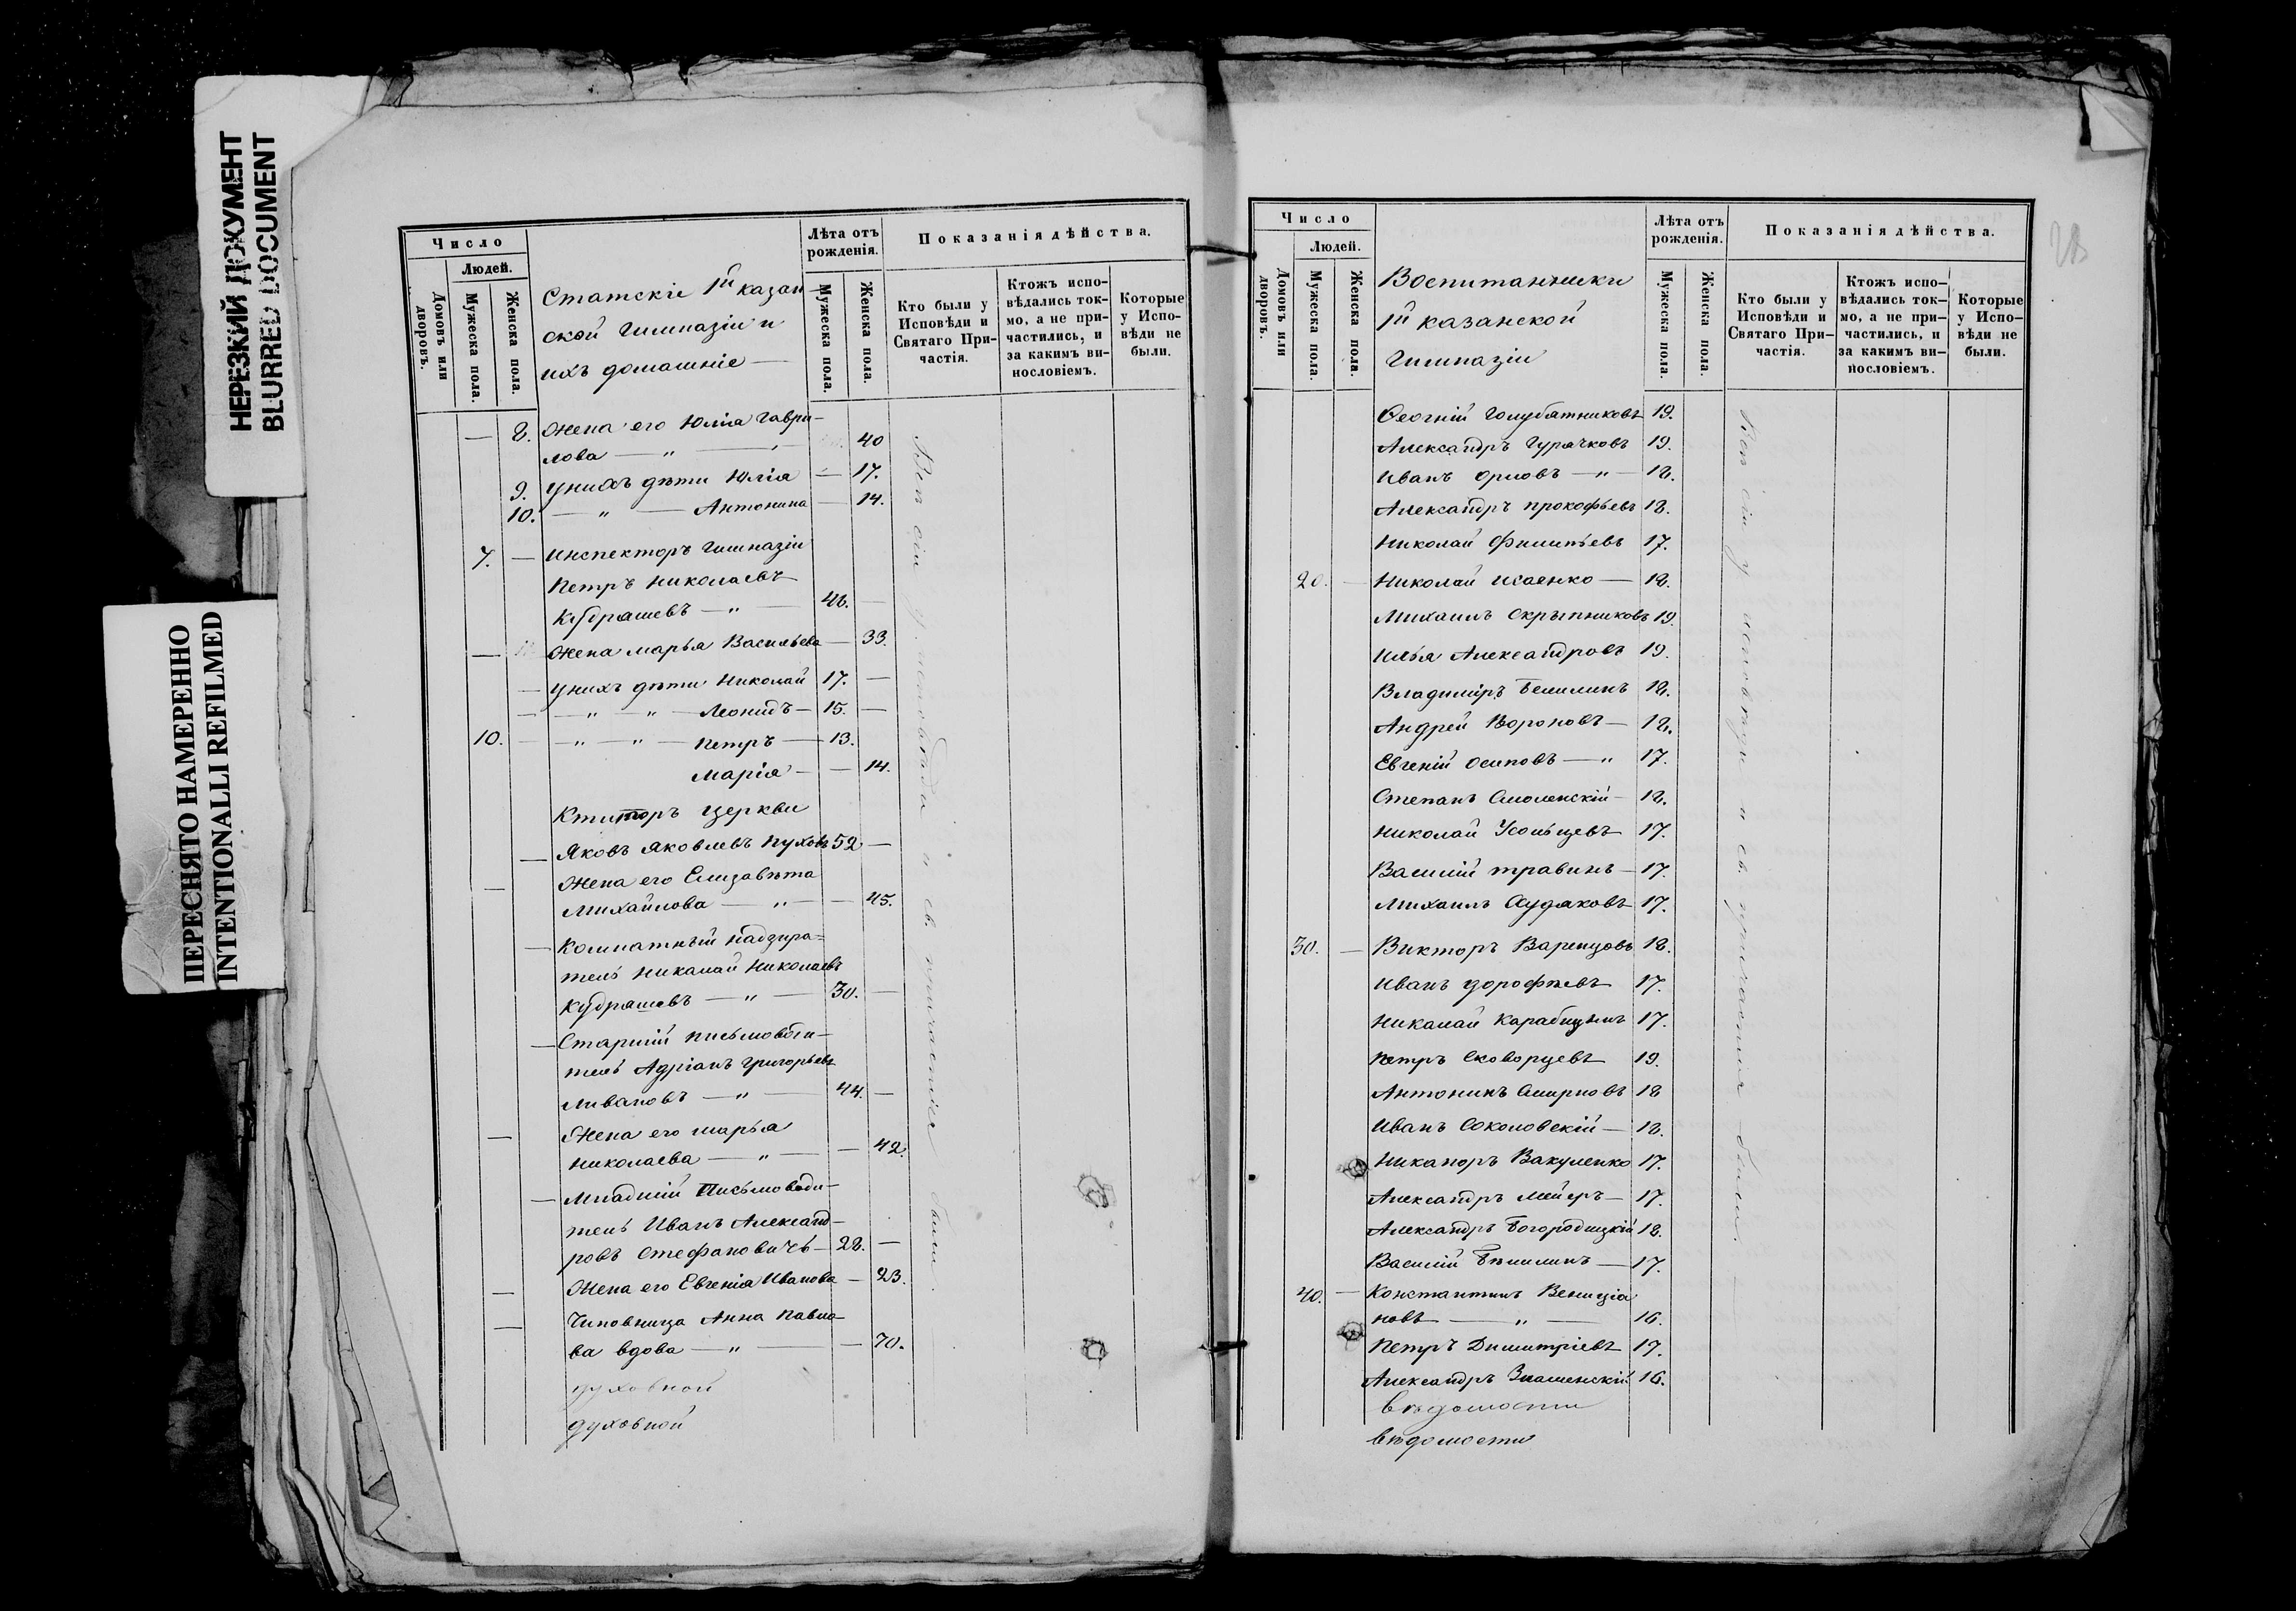 НЕРЕЗКИЙ ДОКУМЕНТ
BLURRED DOCUMENT
ПЕРЕСНЯТО НАМЕРЕННО
INTENTIONALLI REFILMED
Число
Людей.
Домовъ или дворовъ.
Мужеска пола.
Женска пола.
Статскіе 1й казан
ской Гимназіи и
ихъ домашніе —
Лѣта отъ рожденія.
Мужеска пола.
Женска пола.
Показанія дѣйства.
Кто были у Исповѣди и Святаго При-частія.
Ктожъ испо-вѣдались ток-мо, а не при-частились, и за какимъ ви-нословіемъ.
Которые у Испо-вѣди не были.
— 8. Жена его Юлія Гаври-
лова — „ — 40
9. У нихъ дѣти Юлія — 17.
10. — „ — Антонина — 14.
7. — Инспекторъ Гимназіи
Петръ Николаевъ
Кудрашевъ — „ — 48. —
— Жена Марья Васильева — 33.
— У нихъ дѣти Николай 17. —
— — „ — „ — Леонидъ — 15. —
10. — — „ — „ — Петръ — 13.
Марія — — 14.
Ктиторъ Церкви
— Яковъ Яковлевъ Пуховъ 52 —
— Жена его Елизавета
Михайлова — „ — — 45.
— Комнатный Надзира=
тель Николай Николаевъ
Кудрашевъ — „ — 30. —
— Старшій Письмоводи-
тель Адріанъ Григорьевъ
Ливановъ — „ — 44. —
— Жена его Марья
Николаева — „ — — 42.
— Младшій Письмоводи-
тель Иванъ Александ-
ровъ Стефановичъ — 28. —
— Жена его Евгенія Иванова — 23.
— Чиновница Анна Павло-
ва вдова — „ — — 70.
Всѣ сіи у исповѣди и св. причастія были.
духовной
духовной
28
Число
Людей.
Домовъ или дворовъ.
Мужеска пола.
Женска пола.
Воспитанники
1й казанской
Гимназіи
Лѣта отъ рожденія.
Мужеска пола.
Женска пола.
Показанія дѣйства.
Кто были у Исповѣди и Святаго При-частія.
Ктожъ испо-вѣдались ток-мо, а не при-частились, и за какимъ ви-нословіемъ.
Которые у Испо-вѣди не были.
Голубятниковъ 19.
Александръ Гурячковъ 19.
Иванъ Орловъ — „ — 18.
Александръ Прокофьевъ 18.
Николай Филипьевъ 17.
20. — Николай Исаенко — 18.
Михаилъ Скрыпниковъ 19.
Илья Александровъ 19.
Владиміръ Белилинъ 18.
Андрей Вороновъ — 18.
Евгеній Осиповъ — „ 17.
Степанъ Смоленскій — 18.
Николай Усольцевъ 17.
Василій Травинъ — 17.
Михаилъ 17.
30. — Викторъ Варенцовъ 18.
Иванъ Дорофѣевъ 17.
Николай 17.
Петръ Скворцевъ 19.
Антонинъ Смирновъ 18
Иванъ Соколовскій — 18.
Никаноръ Вакуленко 17.
Александръ Мейеръ — 17.
Александръ Богородицкій 18.
Василій — 17.
40. — Константинъ Венеціа
новъ — „ — 16.
Петръ Димитріевъ 17.
Александръ Знаменскій 16.
Всѣ сіи у исповѣди и св. причастія были.
вѣдомости
вѣдомости